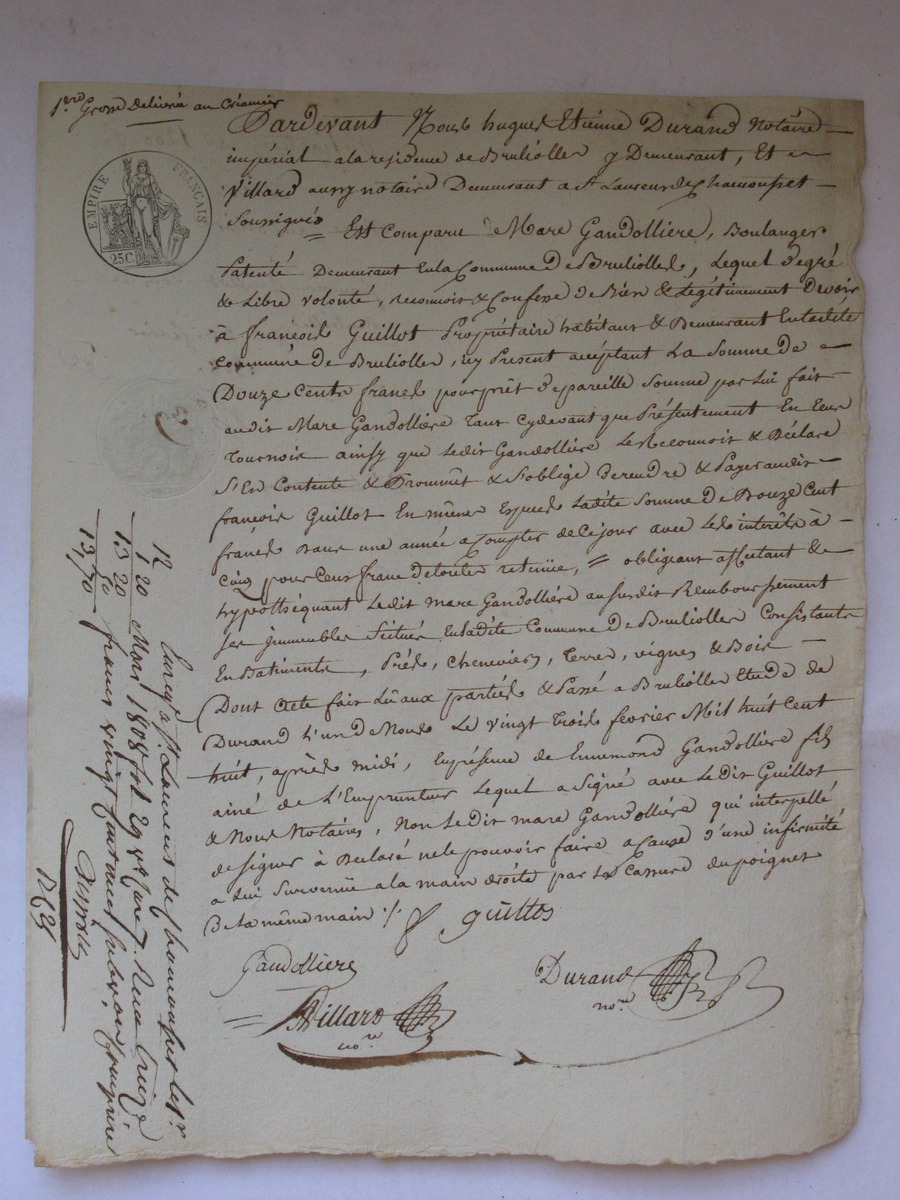 1ere Grosse Délivrée au Créancier
EMPIRE FRANÇAIS
25C.
Pardevant Nous hugues Etienne Durand Notaire
impérial a la residence de Brullioles y Demeurant, Et
Villard aussy notaire Demeurant a St Laurent de Chamousset
Soussignés
= Est Comparu Marc Gandollière, Boulanger
Patenté Demeurant En la Commune De Brullioles, Lequel de gré
& Libre volonté, reconnoit & Confesse de Bien & Légitimement Devoir
à françois Guillot Propriétaire habitant & Demeurant En ladite
commune de Brullioles, icy Present acceptant La Somme de
Douze Cents francs pour prêt de pareille Somme par lui fait
audit Marc Gandollière tant Cydevant que Présentement En
Tournois ainsy que Ledit Gandollière Le Reconnoit & Déclare
S'En Contente & Promet & S'oblige De rendre & Payer audit
françois Guillot En mêmes Espèces Ladite Somme De Douze Cent
francs Dans une année a Compter de Ce jour avec Les interêts à
Cinq pour Cent franc De toutes retenüe, = obligeant affectant &
hypothéquant Ledit marc Gandollière au susdit Remboursement
Ses immeubles Situés En ladite Commune De Brullioles Consistants
En Batiments, Prés, Cheneviers, Terres, vignes & Bois
Dont Acte fait Lû aux parties & Passé a Brullioles Etude de
Durand L'un de Nous Le vingt Trois février Mil huit Cent
huit, après midi, En présence de Ennemond Gandollière fils
ainé de L'Emprunteur Lequel a Signé avec Le Dit Guillot
& Nous Notaires, Non Le dit marc Gandollière qui interpellé
de Signer à Déclaré ne le pouvoir faire a Cause d'une infirmité
a lui Survenüe a la main droite par la Cassure du poignet
De la même main ./.
guillot
Gandolliere
Durand
nore
Villard
nore
Enreg. a St Laurent de Chamousset le
Mars 1808 fol 29 Reçu treize
francs vingt centimes
12
1 20
13 20
50
13,70